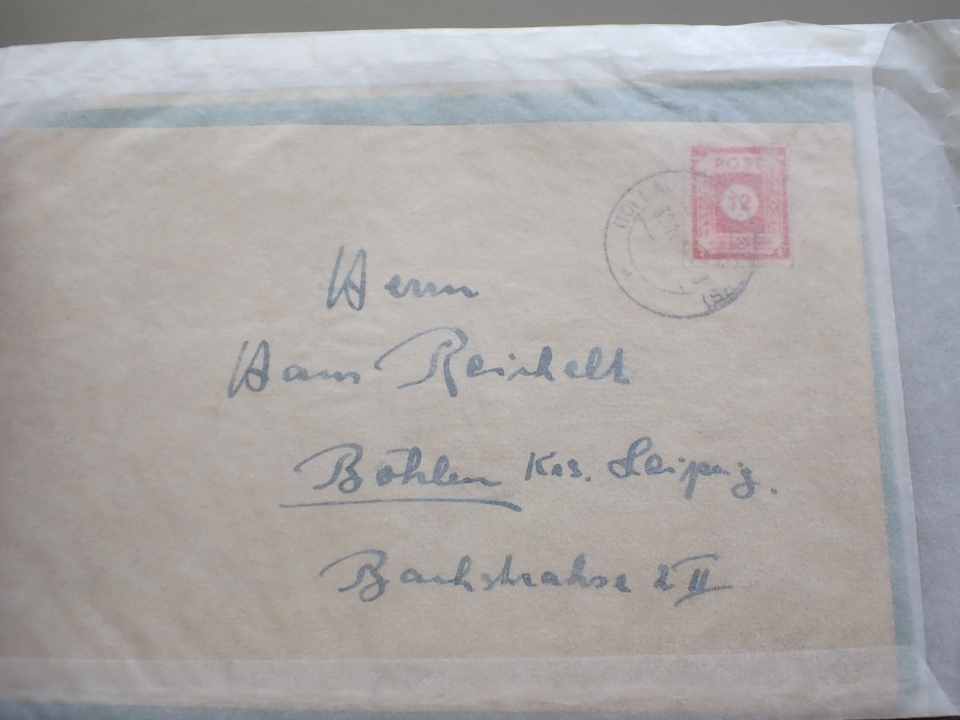 POST
12
Herrn
Hans Reichelt
Böhlen Krs. Leipzig.
Bachstrahse 2 II